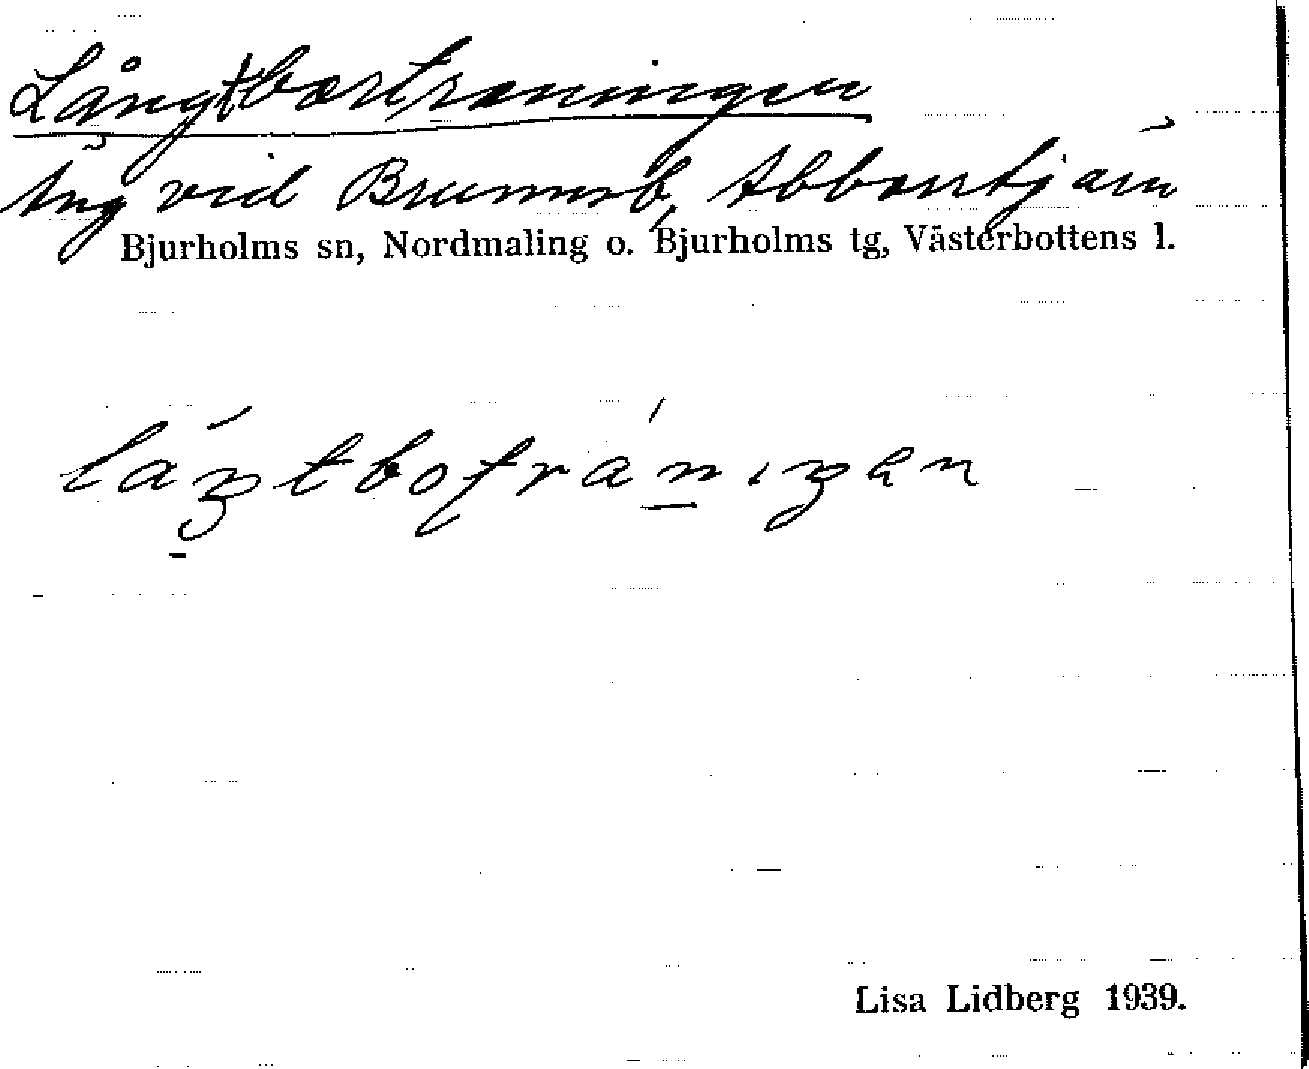 Långtbortraningen
Äng vid Brunnsb, Abborrtjärn
Bjurholms sn, Nordmaling o. Bjurholms tg, Västerbottens l.
Lisa Lidberg 1939.